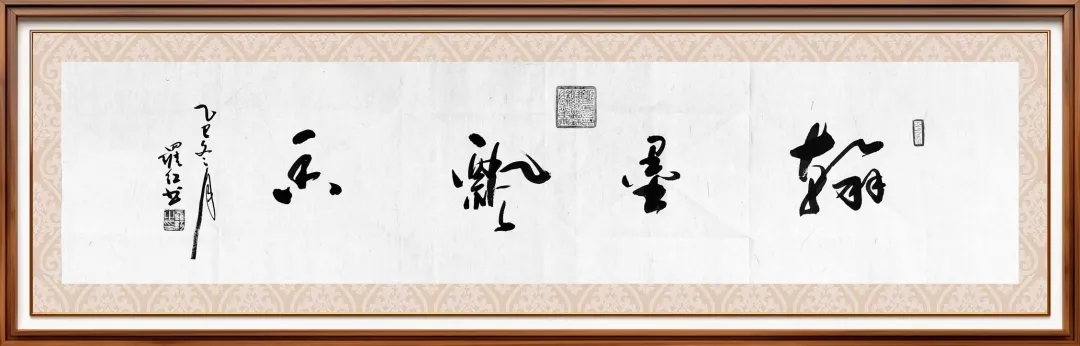 翰墨飘香
乙巳冬月
羅红书